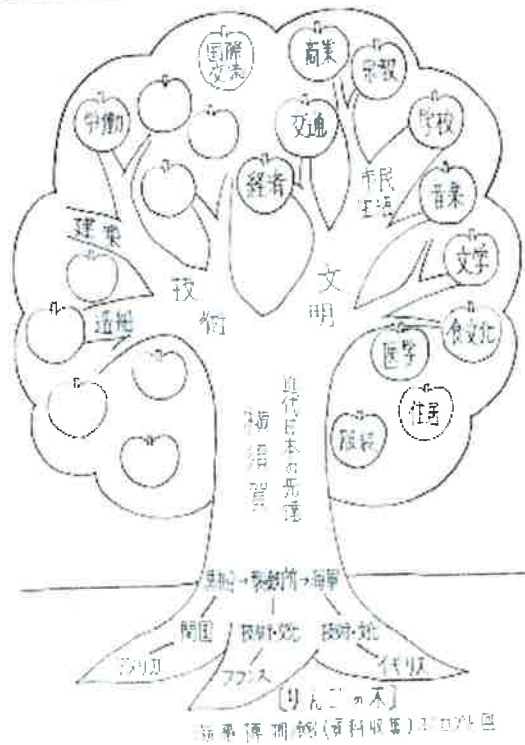 国際
交流
商業
宗教
労働
交通
学校
経済
市民
生活
音楽
建築
文学
技術
文明
造船
医学
食文化
住居
服装
近代日本の先達
横須賀
黒船→製鉄所→海軍
開国
技術・文化
技術・文化
アメリカ
フランス
イギリス
[りんごの木]
博物館(資料収集)